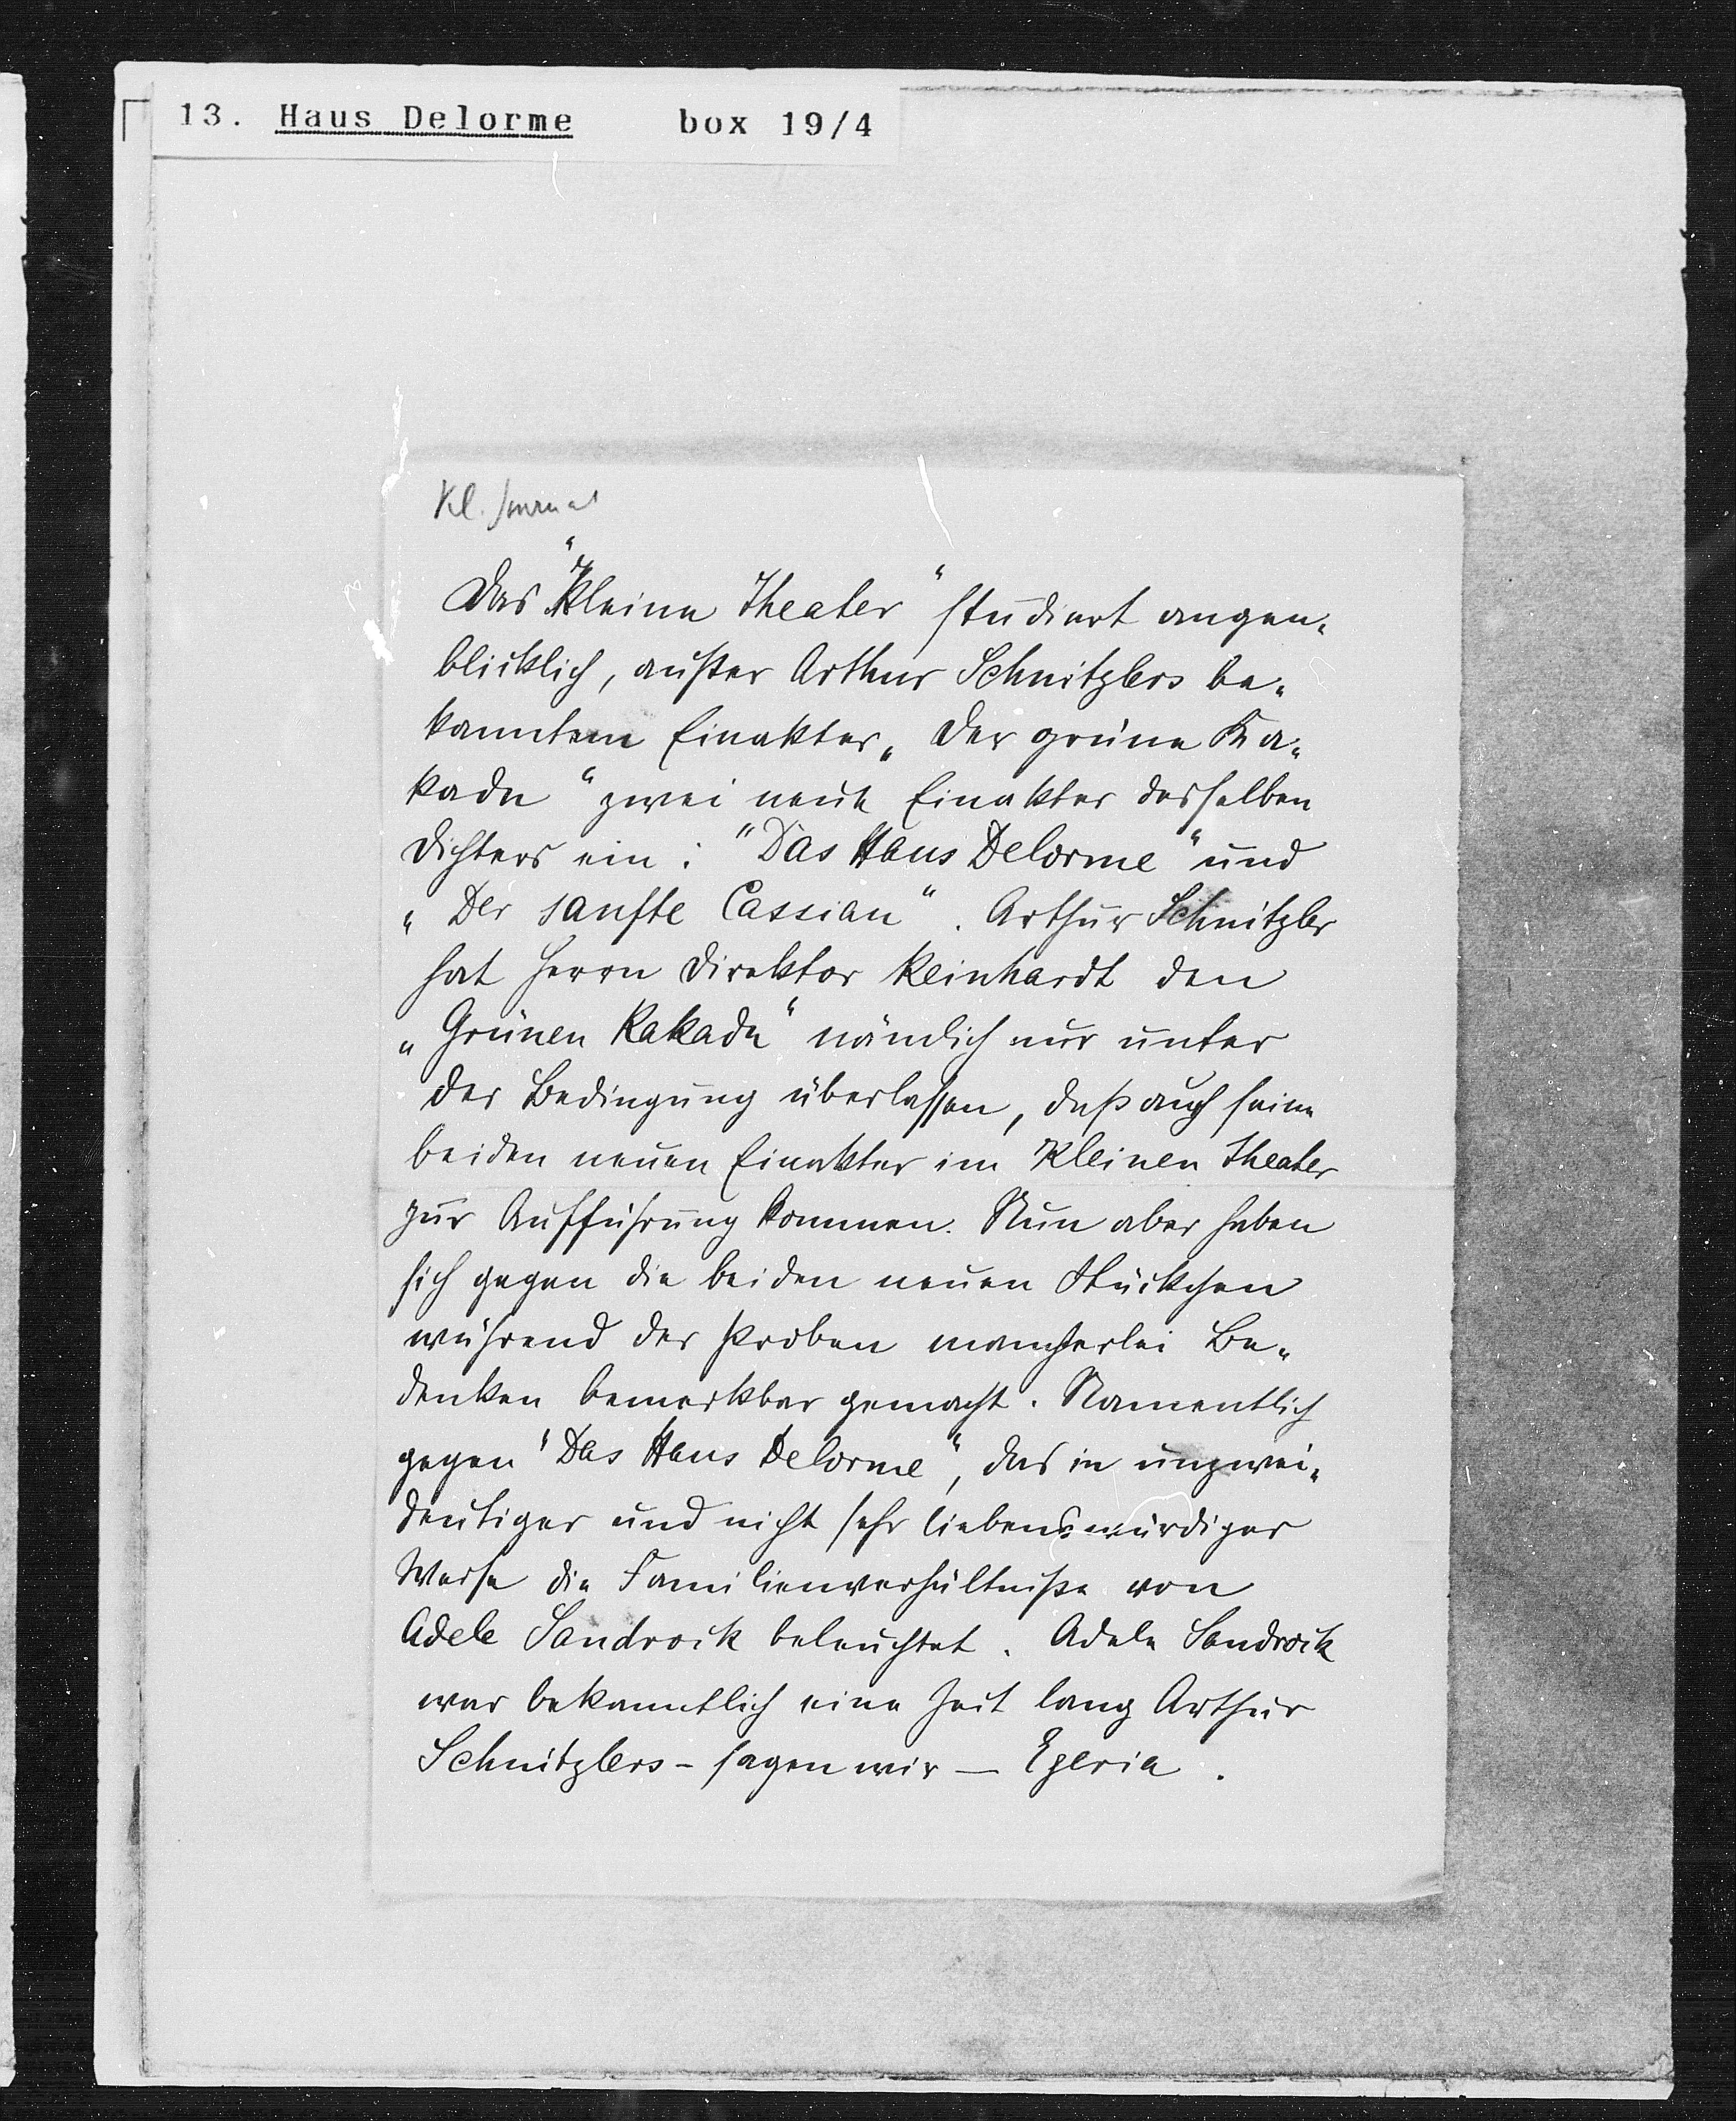 13. Haus Delorme box 19/4
Kl. Journal
Das "Kleine Theater" studiert augen-
blicklich, außer Arthur Schnitzlers be-
kanntem Einakter „Der grüne Ka-
kadu“ zwei neue Einakter desselben
Dichters ein: "Das Haus Delorme" und
„Der sanfte Cassian“. Arthur Schnitzler
hat Herrn Direktor Reinhardt den
„Grünen Kakadu“ nämlich nur unter
der Bedingung überlassen, daß auch seine
beiden neuen Einakter im Kleinen Theater
zur Aufführung kommen. Nun aber haben
sich gegen die beiden neuen Stückchen
während der Proben mancherlei Be-
denken bemerkbar gemacht. Namentlich
gegen "Das Haus Delorme", das in unzwei-
deutiger und nicht sehr liebenswürdiger
Weise die Familienverhältniße von
Adele Sandrock beleuchtet. Adele Sandrock
war bekanntlich eine Zeit lang Arthur
Schnitzlers – sagen wir – Egeria.